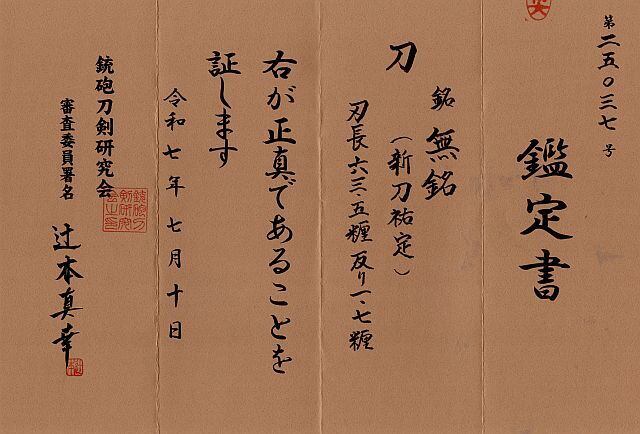 第二五〇三七号
鑑定書
刀 銘 無銘
(新刀祐定)
刃長六三・五糎 反り一・七糎
右が正真であることを
証します
令和七年七月十日
銃砲刀剣研究会
審査委員署名 辻本真幸